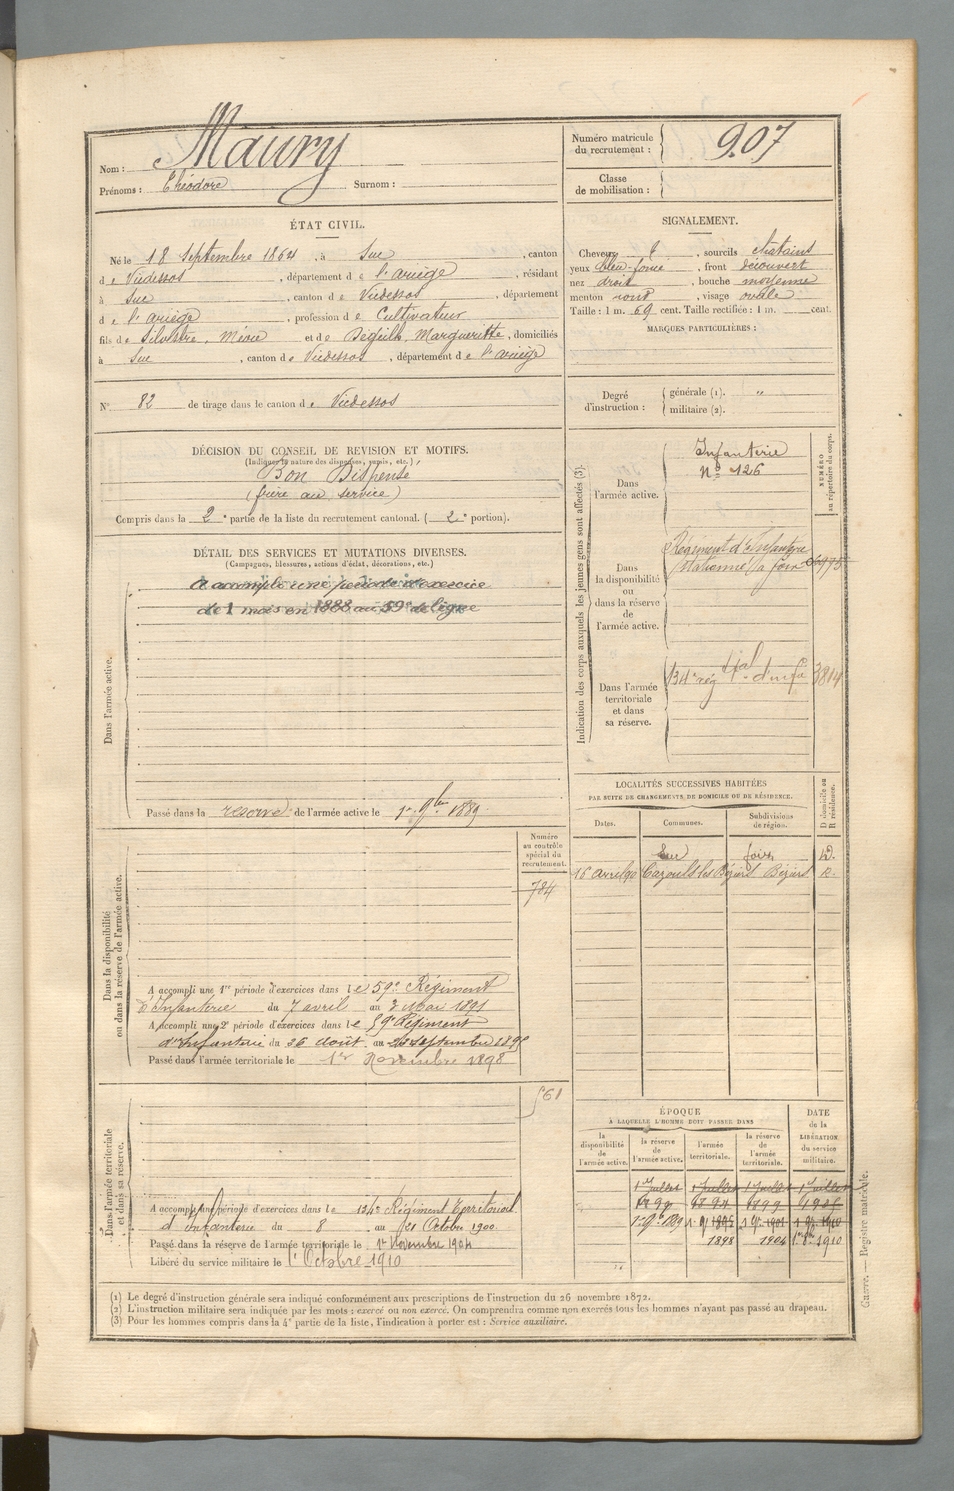 Nom : Maury
Prénoms : Théodore Surnom :
Numéro matricule du recrutement : 907
Classe de mobilisation :
ÉTAT CIVIL.
Né le 18 Septembre 1864, à Suc, canton
de Vicdessos, département de l'ariège, résidant
à Suc, canton de Vicdessos, département
de l'ariège, profession de Cultivateur
fils de Silvestre, Mérie et de Déguilh, Margueritte, domiciliés
à Suc, canton de Vicdessos, département de l'ariège
N° 82 de tirage dans le canton de Vicdessos
SIGNALEMENT.
Cheveux &, sourcils chatains
yeux bleu foncé, front découvert
nez droit, bouche moyenne
menton rond, visage ovale
Taille : 1 m. 69 cent. Taille rectifiée : 1 m. cent.
MARQUES PARTICULIÈRES :
Degré d'instruction : générale (1). "
militaire (2).
DÉCISION DU CONSEIL DE REVISION ET MOTIFS.
(Indiquer la nature des dispenses, sursis, etc.)
Bon Dispensé
(frère au service)
Compris dans la 2e partie de la liste du recrutement cantonal. (2e portion).
DÉTAIL DES SERVICES ET MUTATIONS DIVERSES.
(Campagnes, blessures, actions d'éclat, décorations, etc.)
Dans l'armée active.
A accompli une période d'exercice
de 1 mois en 1888 au 59e de ligne
Passé dans la réserve de l'armée active le 1er 9bre 1889
Dans la disponibilité
ou dans la réserve de l'armée active.
Numéro
au contrôle
spécial du
recrutement.
784
A accompli une 1re période d'exercices dans le 59e Régiment
d'Infanterie du 7 avril au 3 Mai 1891
A accompli une 2e période d'exercices dans le 59e Régiment
d'Infanterie du 26 août au
Passé dans l'armée territoriale le 1er Novembre 1898
Dans l'armée territoriale
et dans sa réserve.
561
A accompli une période d'exercices dans le 134e Régiment Territorial
d'Infanterie du 8 au 21 Octobre 1900
Passé dans la réserve de l'armée territoriale le 1er Novembre 1904
Libéré du service militaire le 1er Octobre 1910
Indication des corps auxquels les jeunes gens sont affectés (3).
NUMÉRO
au répertoire du corps.
Dans
l'armée active.
Infanterie
N° 126
Dans
la disponibilité
ou
dans la réserve
de
l'armée active.
Régiment d'Infanterie
stationné à foix
Dans l'armée
territoriale
et dans
sa réserve.
134e rég tial d'infie 3814
LOCALITÉS SUCCESSIVES HABITÉES
PAR SUITE DE CHANGEMENTS DE DOMICILE OU DE RÉSIDENCE.
Dates. Communes. Subdivisions de région. D domicile ou R résidence.
Suc foix D.
16 avril 90 Cazouls les Béziers Béziers R.
ÉPOQUE
A LAQUELLE L'HOMME DOIT PASSER DANS
DATE
de la
LIBÉRATION
du service
militaire.
la
disponibilité
de
l'armée active.
la réserve
de
l'armée active.
l'armée
territoriale.
la réserve
de
l'armée
territoriale.
1er Juillet 1er Juillet 1er Juillet 1er Juillet
1894 1899
1er 9bre 1889
1898 1904 1910
(1) Le degré d'instruction générale sera indiqué conformément aux prescriptions de l'instruction du 26 novembre 1872.
(2) L'instruction militaire sera indiquée par les mots : exercé ou non exercé. On comprendra comme non exercés tous les hommes n'ayant pas passé au drapeau.
(3) Pour les hommes compris dans la 4e partie de la liste, l'indication à porter est : Service auxiliaire.
Guerre. — Registre matricule.